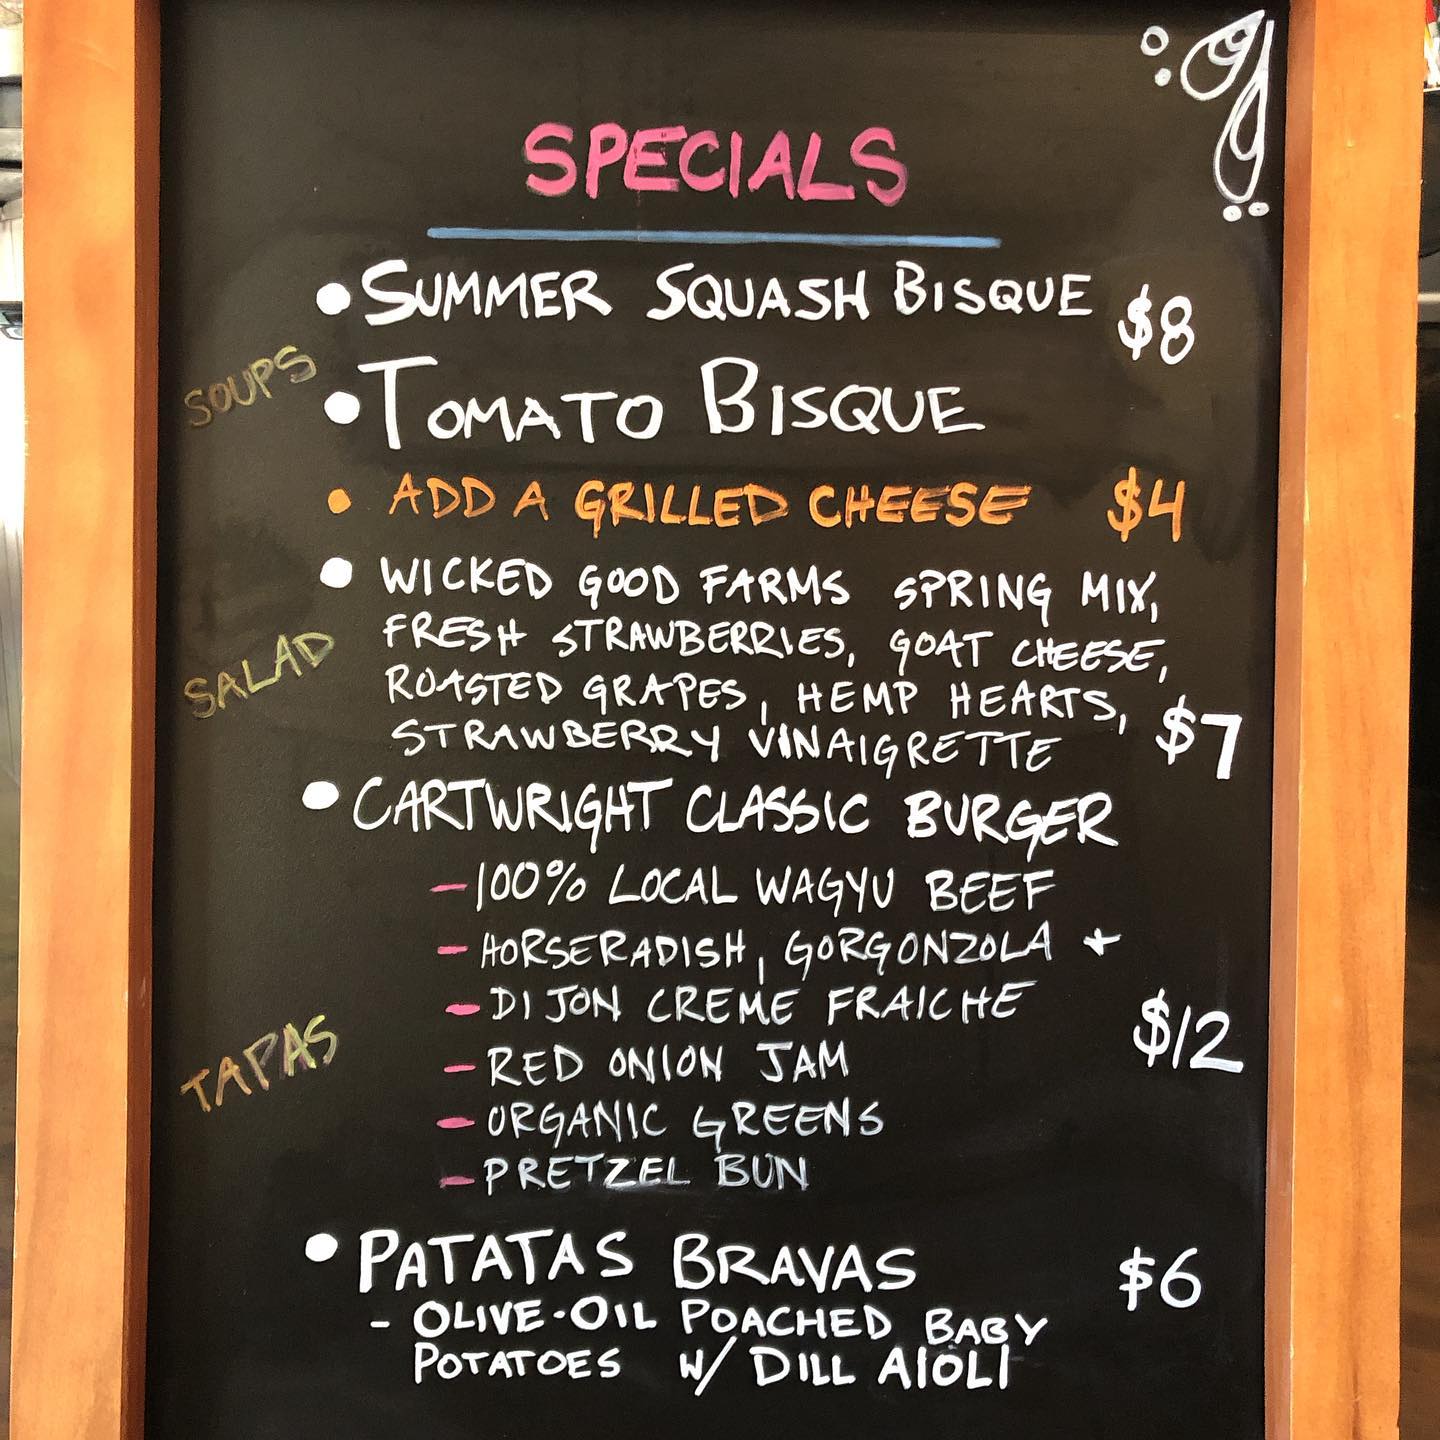 SPECIALS
• SUMMER SQUASH BISQUE $8
SOUPS
• TOMATO BISQUE
• ADD A GRILLED CHEESE $4
• WICKED GOOD FARMS SPRING MIX,
SALAD
FRESH STRAWBERRIES, GOAT CHEESE,
ROASTED GRAPES, HEMP HEARTS,
STRAWBERRY VINAIGRETTE $7
• CARTWRIGHT CLASSIC BURGER
- 100% LOCAL WAGYU BEEF
- HORSERADISH, GORGONZOLA +
- DIJON CREME FRAICHE
$12
TAPAS
- RED ONION JAM
- ORGANIC GREENS
- PRETZEL BUN
• PATATAS BRAVAS $6
- OLIVE-OIL POACHED BABY
POTATOES W/ DILL AIOLI